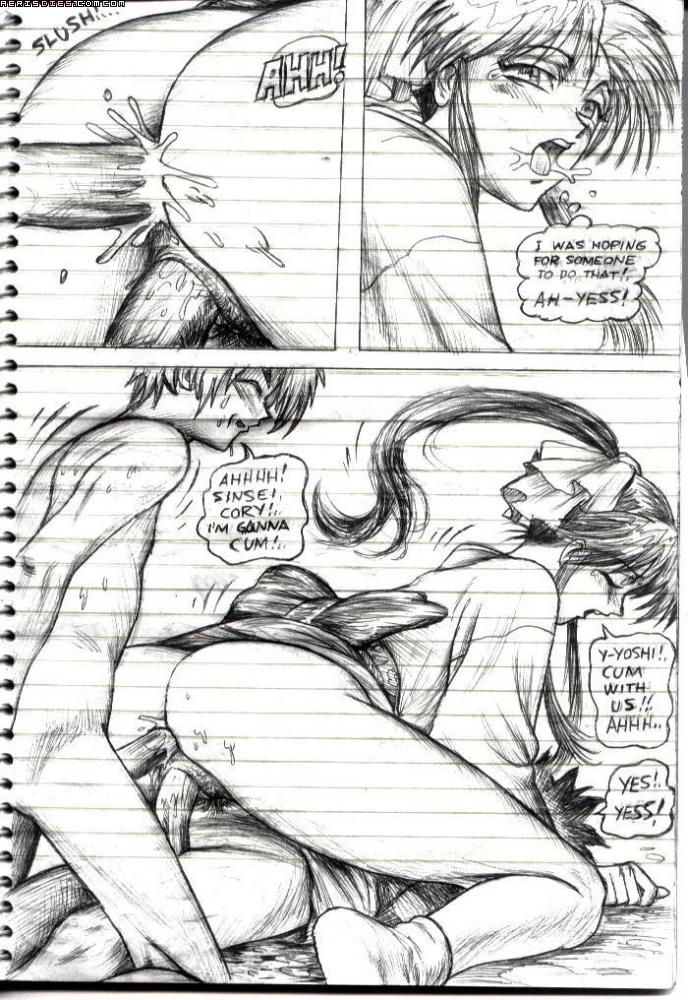 AERISDIES.COM.COM
SLUSH!...
AHH!
I WAS HOPING
FOR SOMEONE
TO DO THAT!
AH-YESS!
AHHHH!
SINSEI,
CORY!..
I'M GANNA
CUM!..
Y-YOSHI!,
CUM
WITH
US!!
AHHH..
YES!.
YESS!